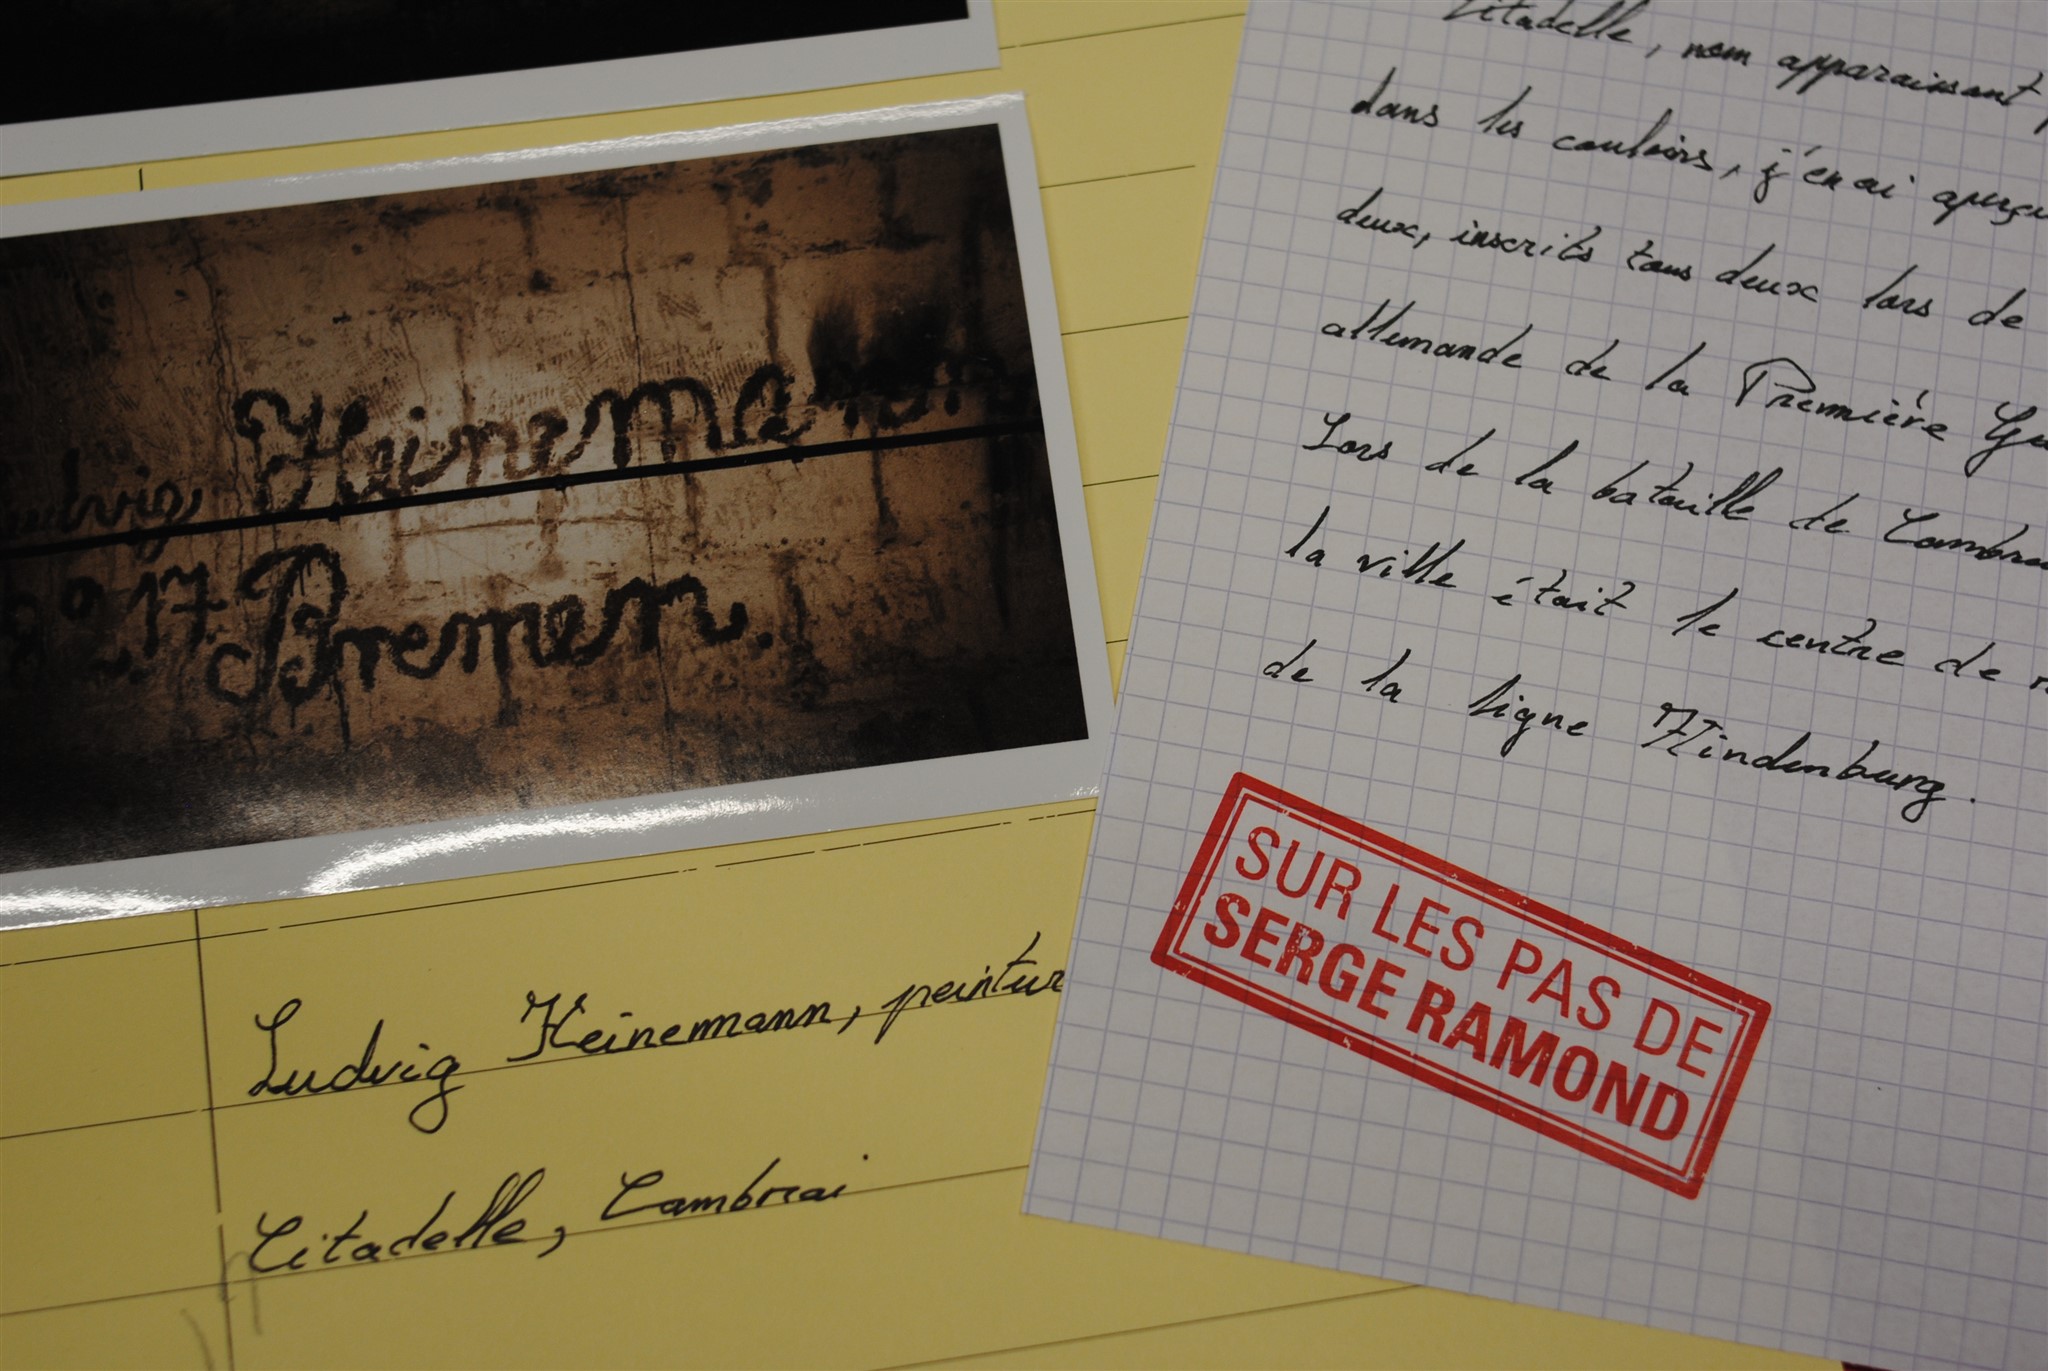 Heinemann
Bremen.
Ludvig Heinemann, peintur
Citadelle, Cambrai
Citadelle, nom apparaissant
dans les couloirs, j'en ai aperçu
deux, inscrits tous deux lors de
allemande de la Première
Lors de la bataille de Cambrai
la ville était le centre de
de la ligne Hindenburg.
SUR LES PAS DE
SERGE RAMOND